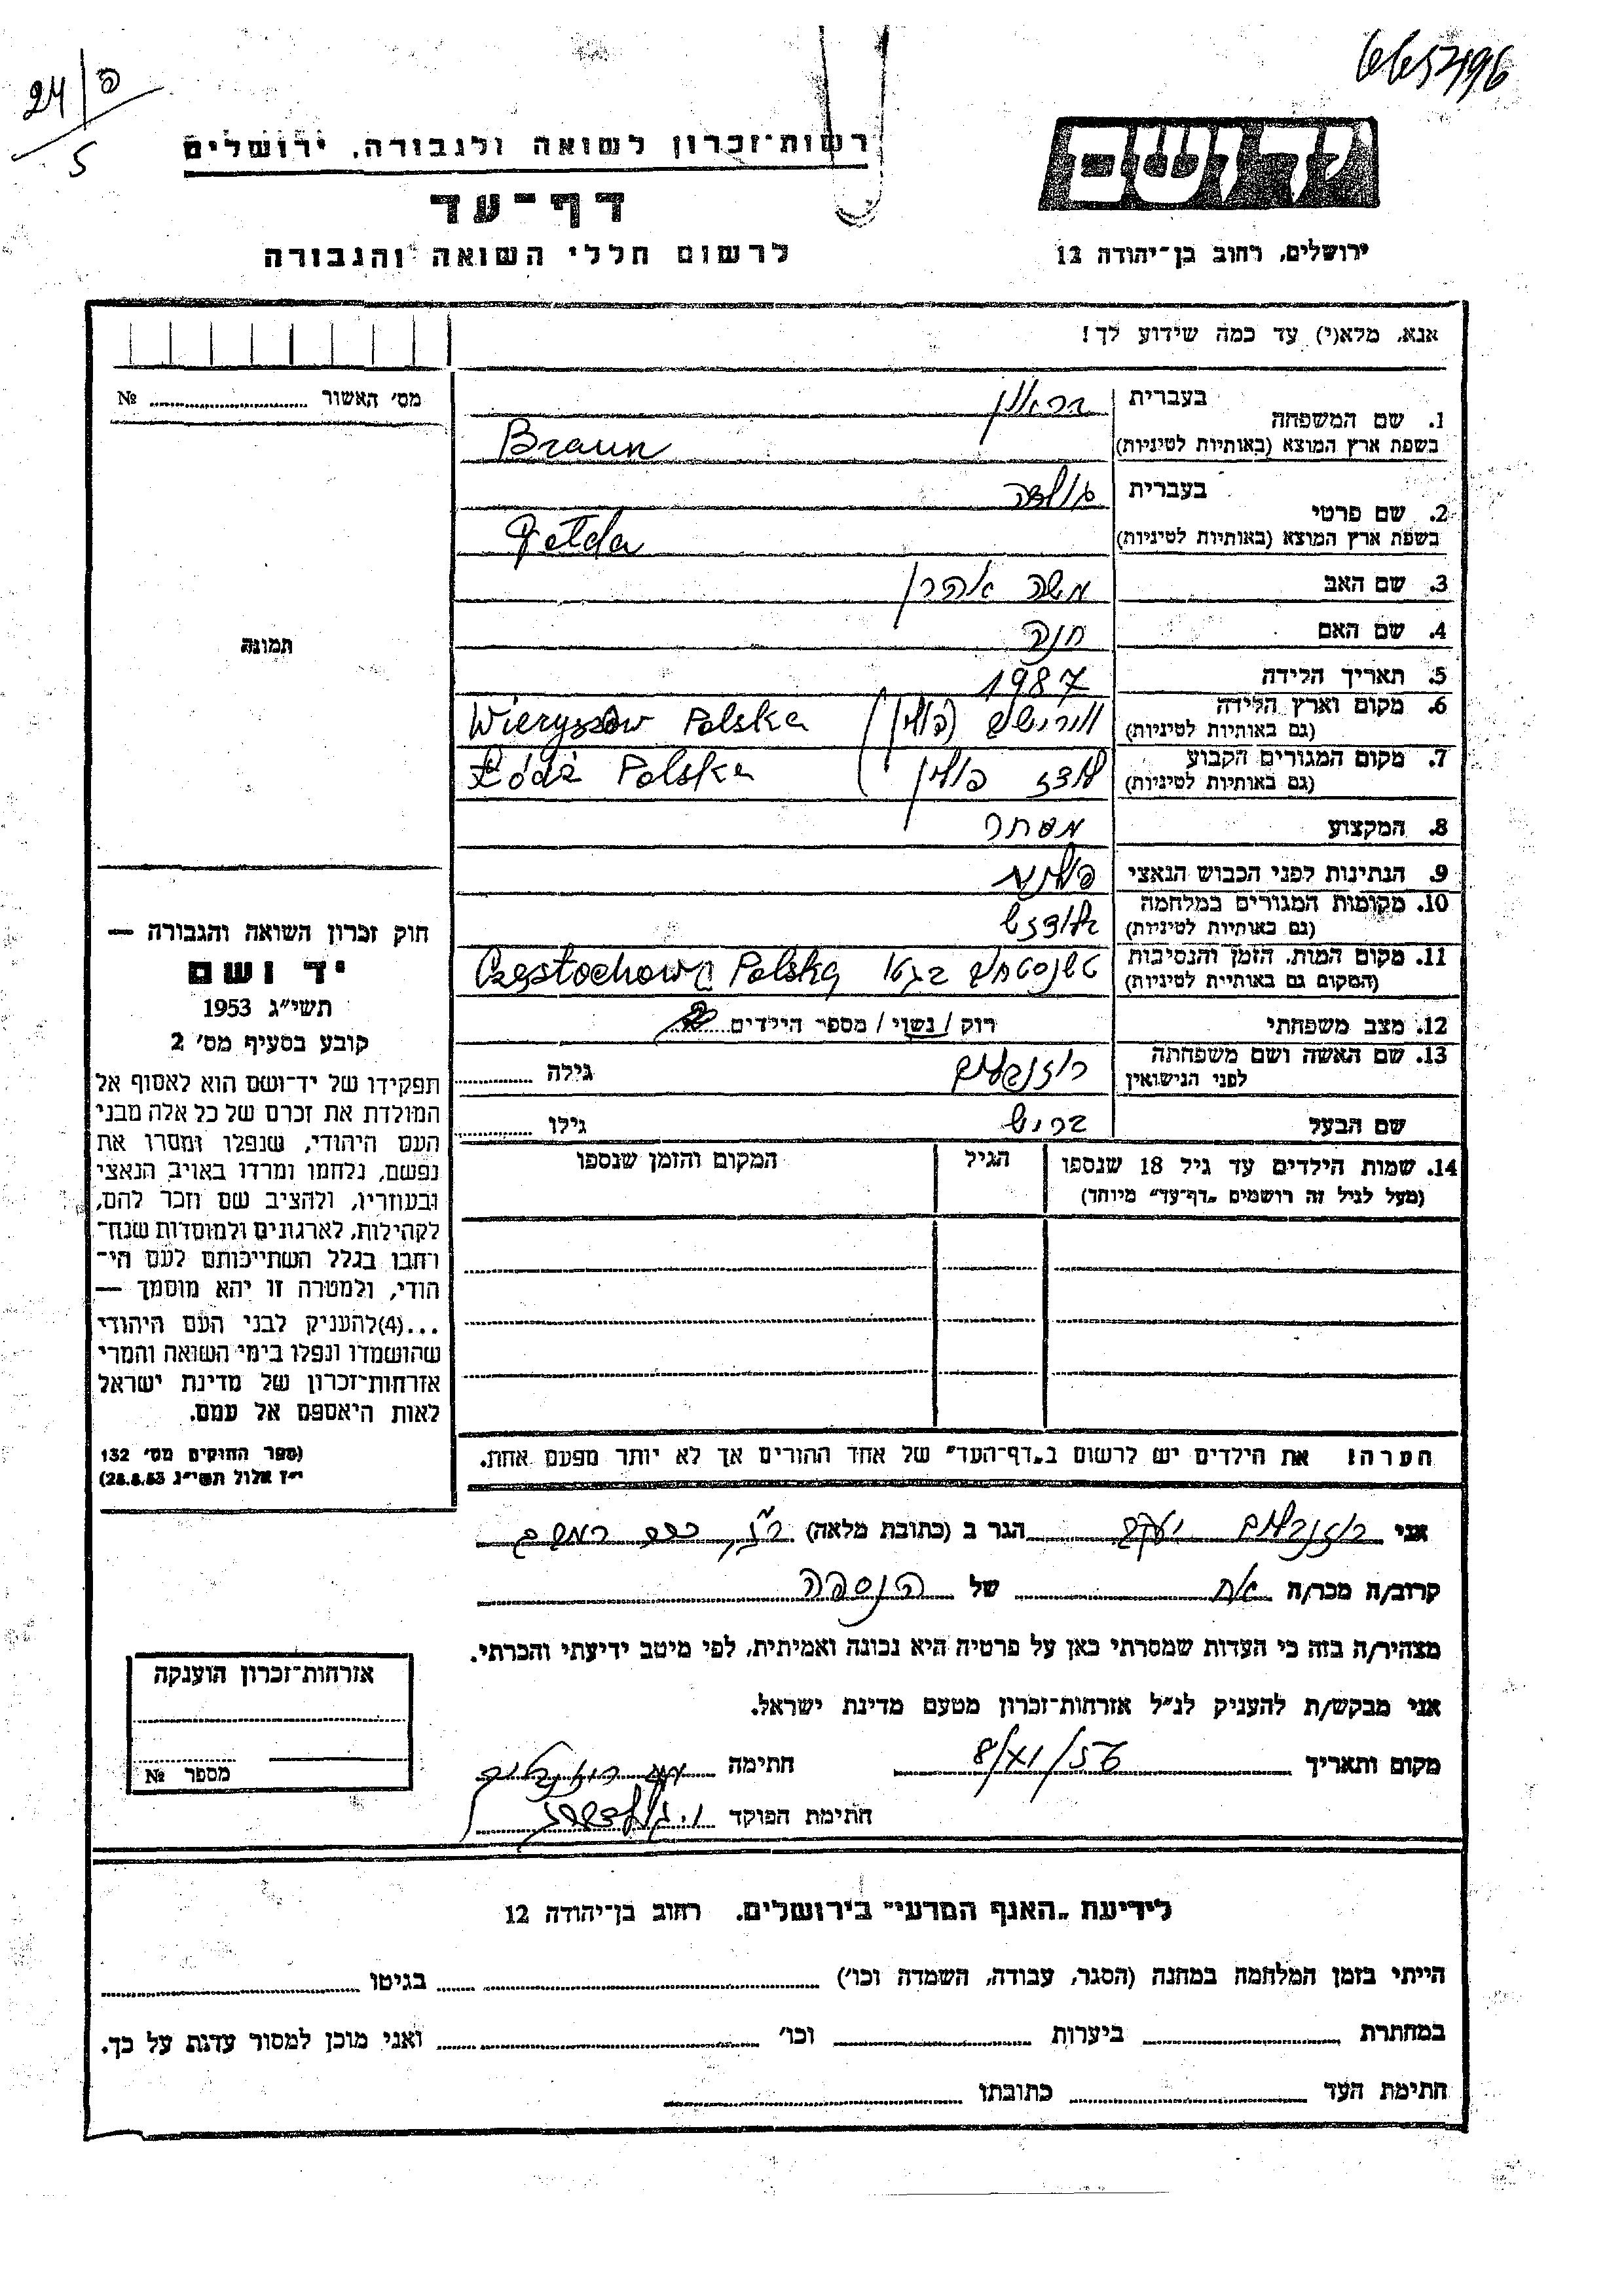 6657496
24/פ
5
רשות־זכרון לשואה ולגבורה, ירושלים
דף־עד
לרשום חללי השואה והגבורה
יד ושם
ירושלים, רחוב בן־יהודה 12
אנא, מלא(י) עד כמה שידוע לך!
מס׳ האשור № 
1. שם המשפחה בעברית בראון
בשפת ארץ המוצא (באותיות לטיניות) Braun
2. שם פרטי בעברית גולדה
בשפת ארץ המוצא (באותיות לטיניות) Gołda
3. שם האב משה אהרן
4. שם האם חנה
5. תאריך הלידה 1987
6. מקום וארץ הלידה (פולין) Polska
(גם באותיות לטיניות)
7. מקום המגורים הקבוע לודז פולין Łódź Polska
(גם באותיות לטיניות)
8. המקצוע מסחר
9. הנתינות לפני הכבוש הנאצי פולנית
10. מקומות המגורים במלחמה
(גם באותיות לטיניות)
11. מקום המות, הזמן והנסיבות בגטו Częstochowa Polska
(המקום גם באותיית לטיניות)
12. מצב משפחתי רוק / נשוי / מספר הילדים
13. שם האשה ושם משפחתה רוזנבלום גילה
לפני הנישואין
שם הבעל ברוש גילו
14. שמות הילדים עד גיל 18 שנספו הגיל המקום והזמן שנספו
(מעל לגיל זה רושמים „דף־עד״ מיוחד)
הערה! את הילדים יש לרשום ב„דף־העד״ של אחד ההורים אך לא יותר מפעם אחת.
תמונה
חוק זכרון השואה והגבורה —
יד ושם
תשי״ג 1953
קובע בסעיף מס׳ 2
תפקידו של יד־ושם הוא לאסוף אל
המולדת את זכרם של כל אלה מבני
העם היהודי, שנפלו ומסרו את
נפשם, נלחמו ומרדו באויב הנאצי
ובעוזריו, ולהציב שם וזכר להם,
לקהילות, לארגונים ולמוסדות שנח־
רחבו בגלל השתייכותם לעם הי־
הודי, ולמטרה זו יהא מוסמך —
...(4)להעניק לבני העם היהודי
שהושמדו ונפלו בימי השואה והמרי
אזרחות־זכרון של מדינת ישראל
לאות היאספם אל עמם.
(ספר החוקים מס׳ 132
י״ז אלול תשי״ג 28.8.53)
אני רוזנבלום יעקב הגר ב (כתובת מלאה)
קרוב/ה מכר/ה אח של הנספה
מצהיר/ה בזה כי העדות שמסרתי כאן על פרטיה היא נכונה ואמיתית, לפי מיטב ידיעתי והכרתי.
אני מבקש/ת להעניק לנ״ל אזרחות־זכרון מטעם מדינת ישראל.
מקום ותאריך 8/XI/56 חתימה
חתימת הפוקד
אזרחות־זכרון הוענקה
מספר №
לידיעת „האגף המדעי״ בירושלים. רחוב בן־יהודה 12
הייתי בזמן המלחמה במחנה (הסגר, עבודה, השמדה וכו׳) בגיטו
במחתרת ביערות וכו׳ ואני מוכן למסור עדות על כך.
חתימת העד כתובתו